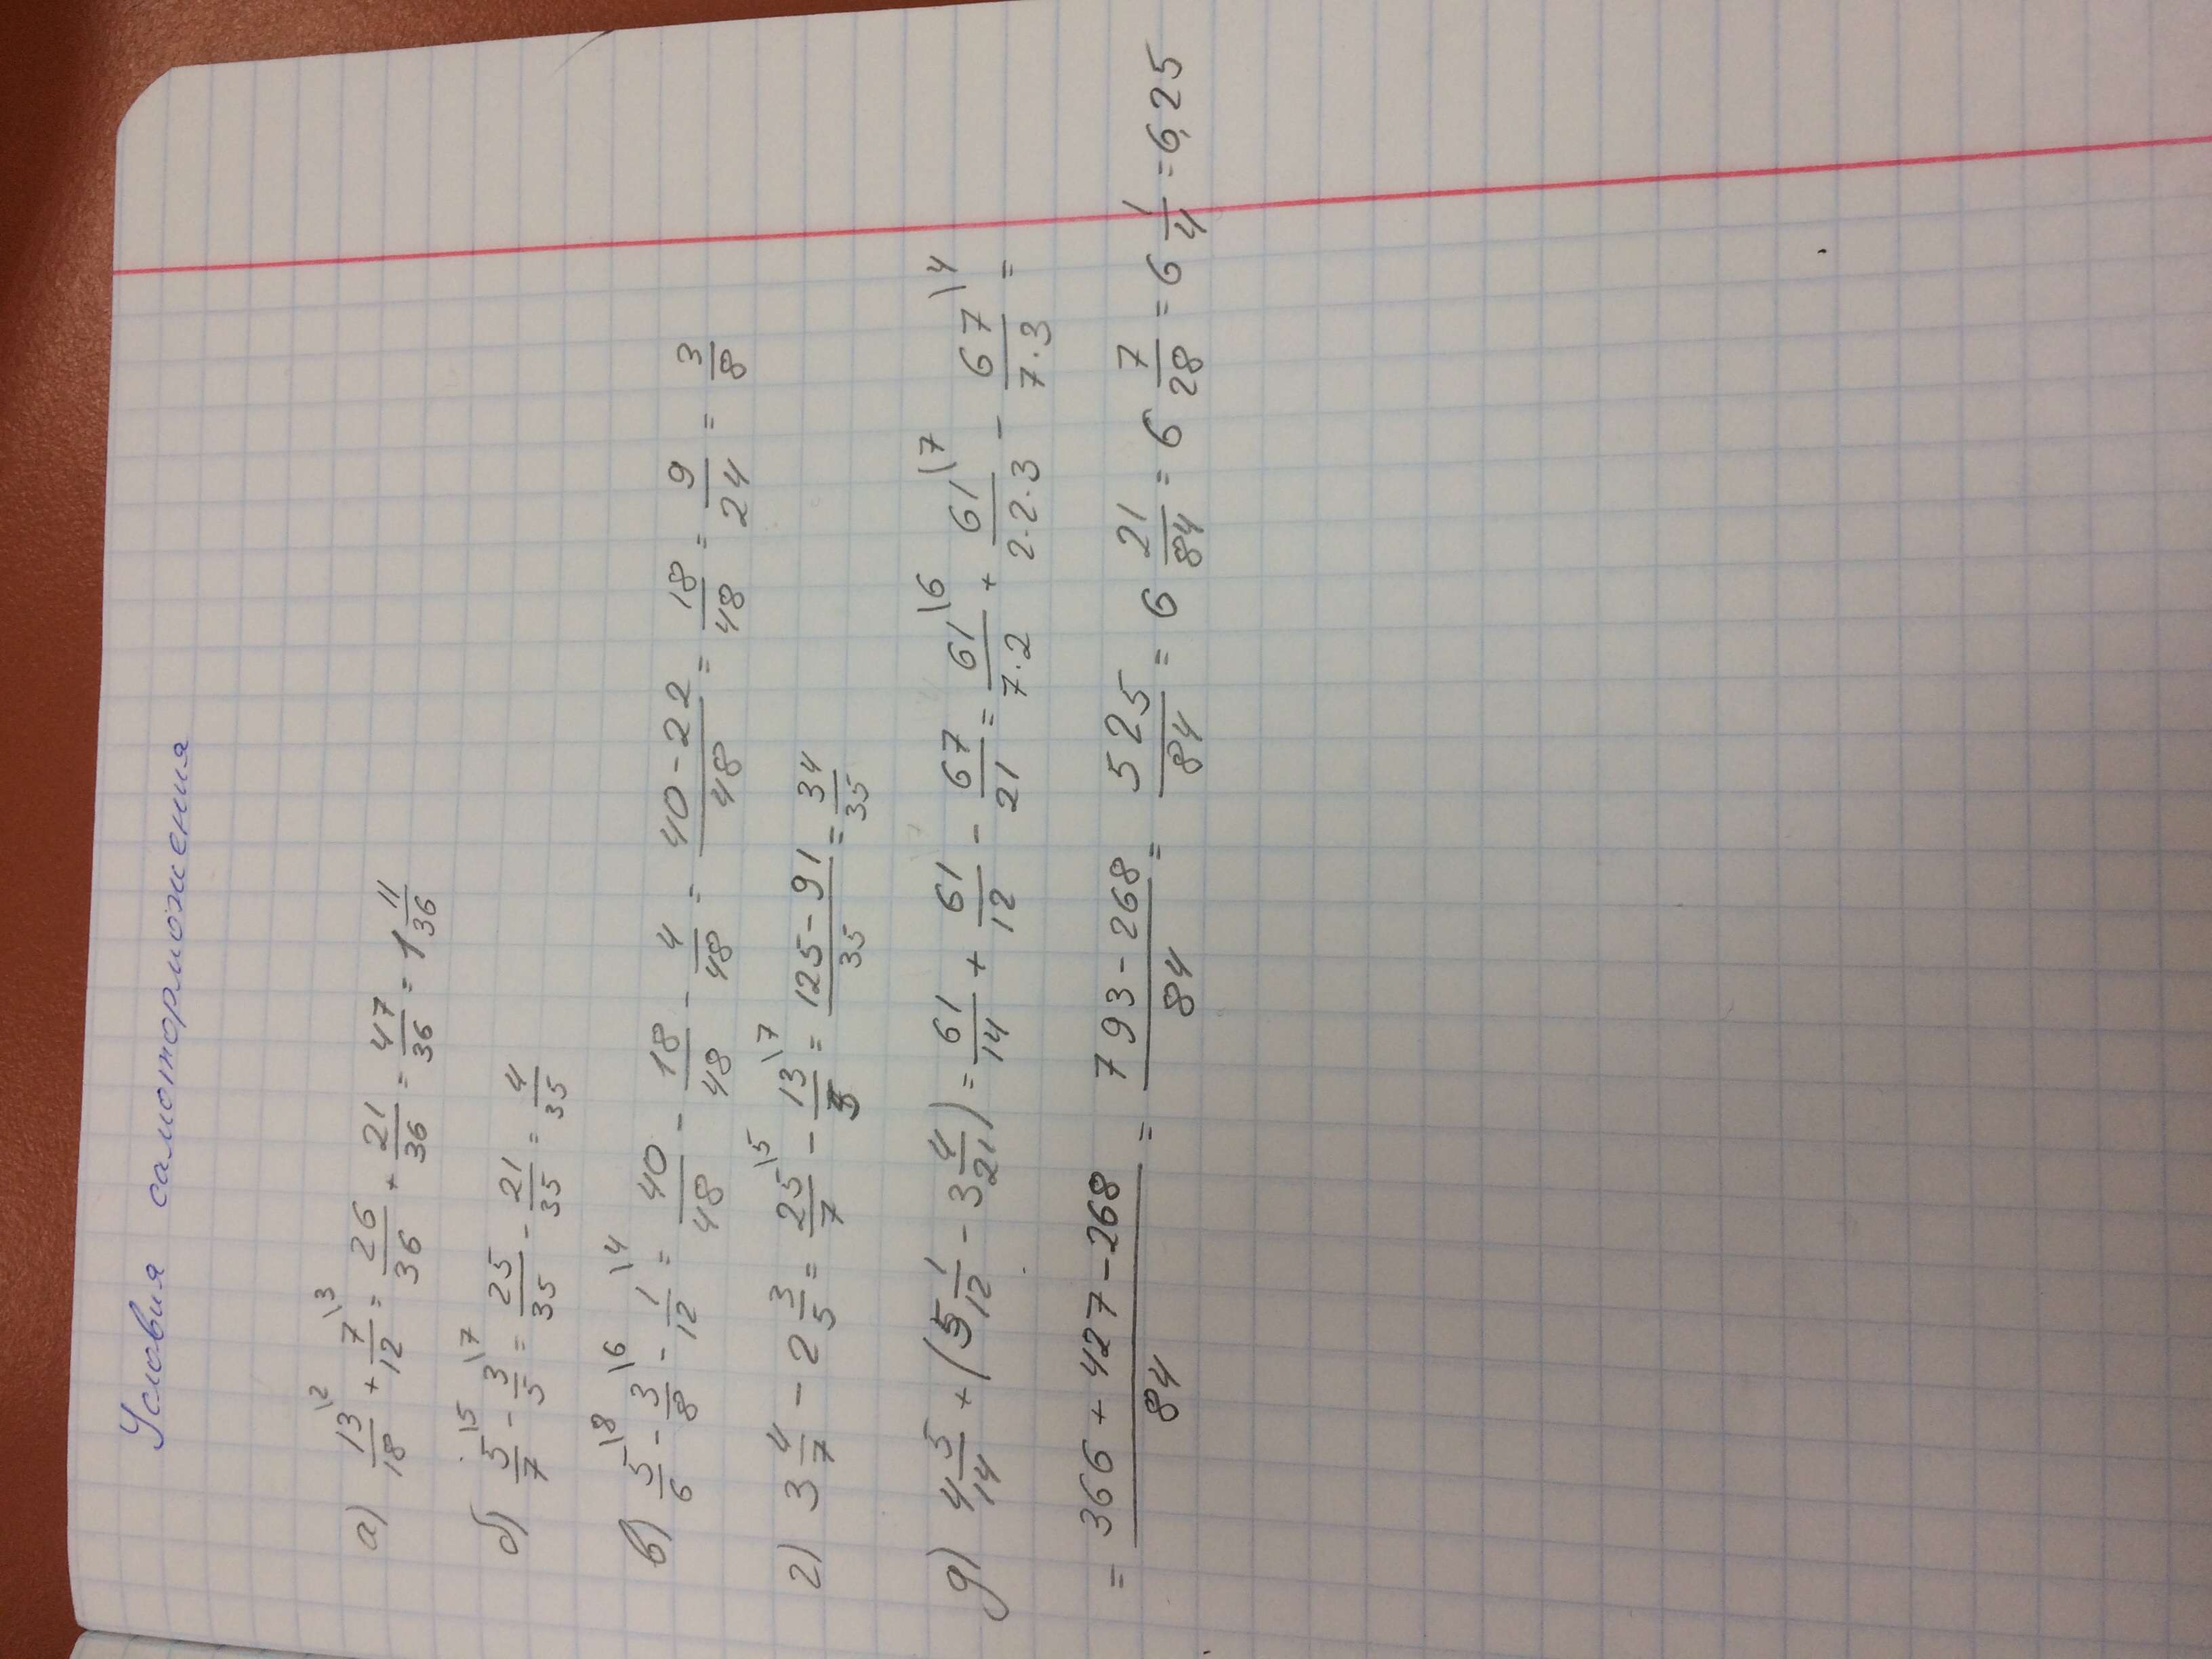 Условия самоторможения
а) 13/18 \2 + 7/12 \3 = 26/36 + 21/36 = 47/36 = 1 11/36
б) 5/7 \5 - 3/5 \7 = 25/35 - 21/35 = 4/35
в) 5/6 \8 - 3/8 \6 - 1/12 \4 = 40/48 - 18/48 - 4/48 = (40-22)/48 = 18/48 = 9/24 = 3/8
г) 3 4/7 - 2 3/5 = 25/7 \5 - 13/5 \7 = (125-91)/35 = 34/35
д) 4 5/14 + (5 1/12 - 3 4/21) = 61/14 + 61/12 - 67/21 = 61/(7·2) \6 + 61/(2·2·3) \7 - 67/(7·3) \4 =
= (366 + 427 - 268)/84 = (793 - 268)/84 = 525/84 = 6 21/84 = 6 7/28 = 6 1/4 = 6,25